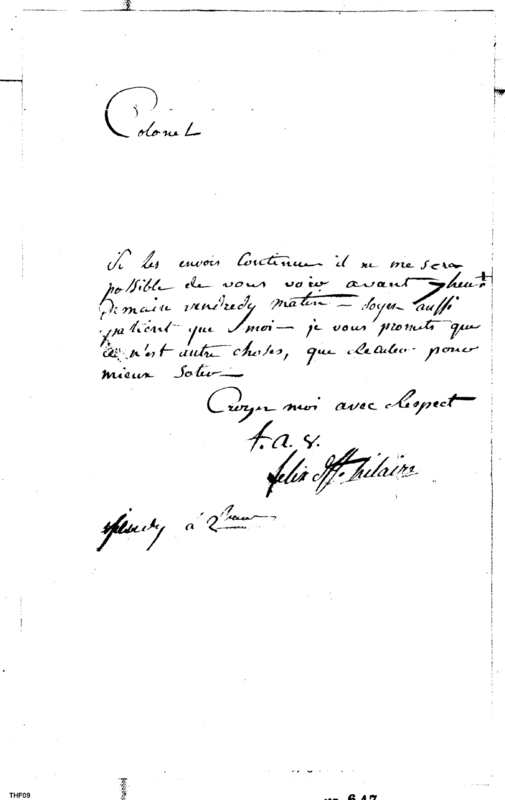 Colonel
Si les envois Continue il ne me sera
possible de vous voir avant 7 heur
Demain vendredy matin – soyes aussi
patient que moi – je vous promets que
ce n'est autre choses, que reculer pour
mieux Soter –
Croyez moi avec Respect
t. a. v.
felix St. hilaire
à 2 heur
THF09